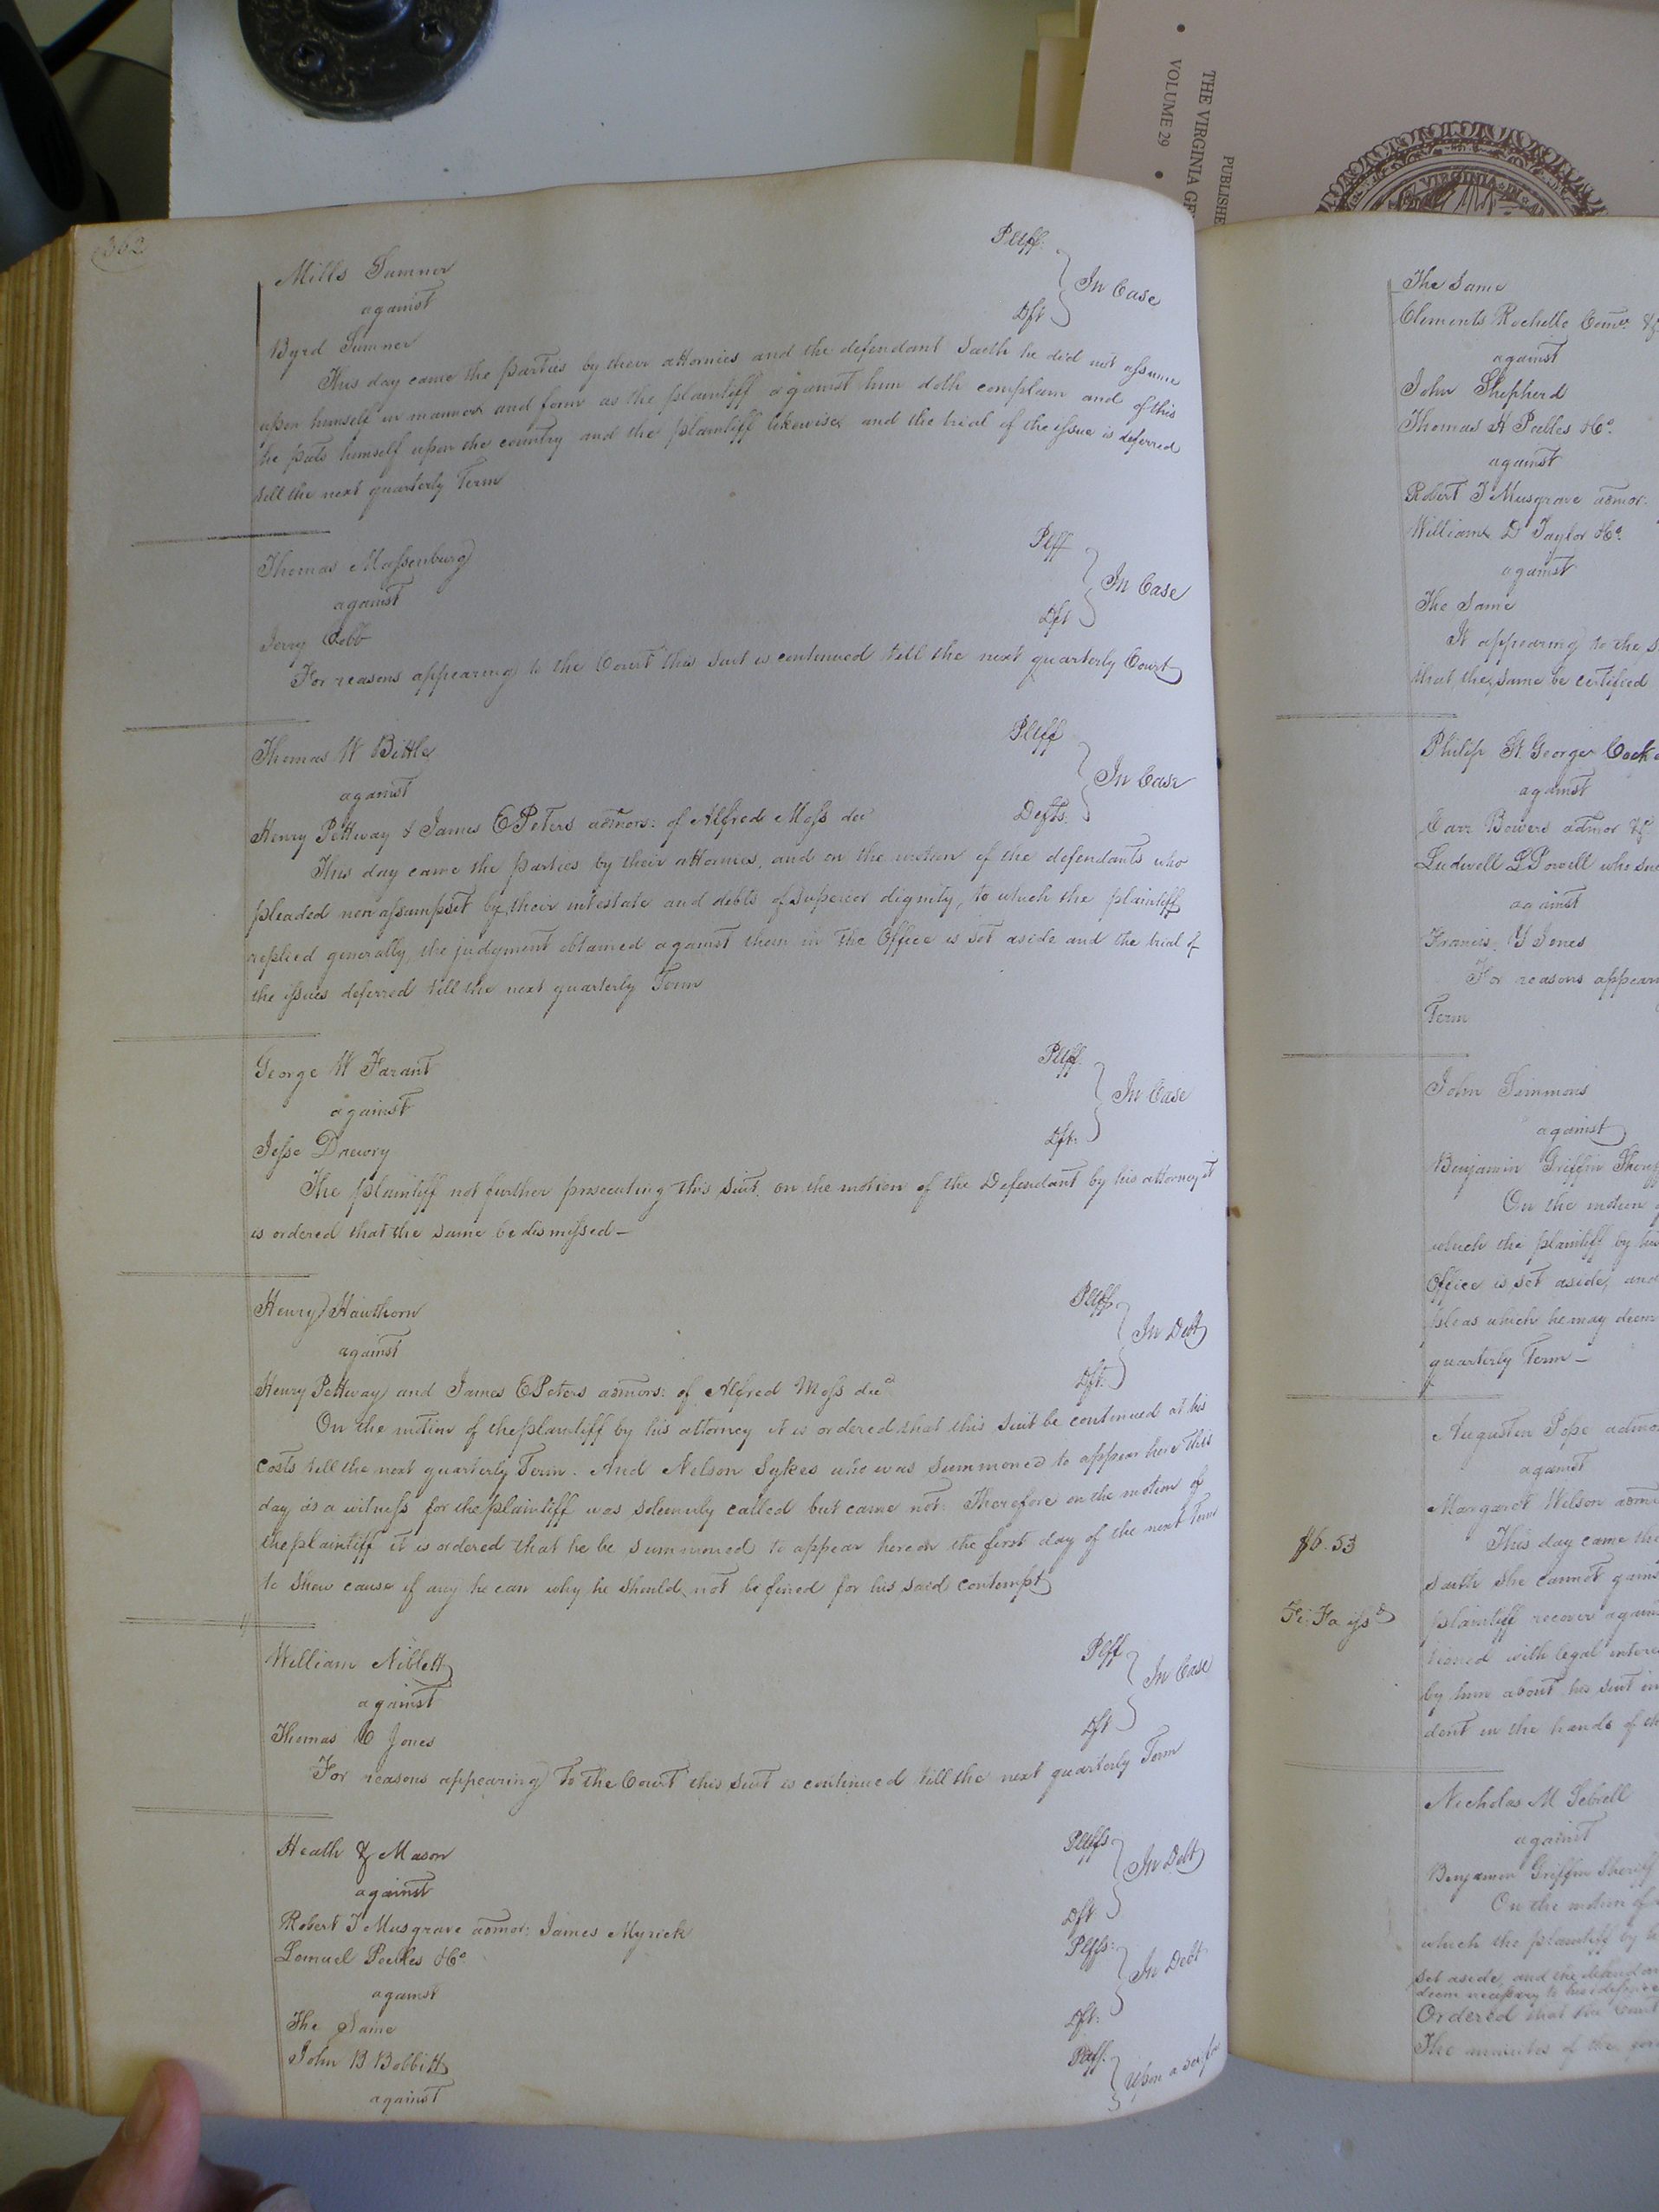 THE VIRGINIA GE
VOLUME 29
PUBLISHE
VIRGINIA
362
Mills Sumner Pltff.
against In Case
Byrd Sumner Dft
This day came the parties by their attornies and the defendant saith he did not assume
upon himself in manner and form as the plaintiff against him doth complain and of this
he puts himself upon the country and the plaintiff likewise and the trial of the issue is deferred
till the next quarterly Term
Thomas Massenburg Pltff
against In Case
Jerry Cobb Dft
For reasons appearing to the Court this suit is continued till the next quarterly Court
Thomas W Bittle Pltff
against In Case
Henry Pettway & James E Peters admors: of Alfred Moss decd Defts.
This day came the parties by their attornies, and on the motion of the defendants who
pleaded non assumpsit by their intestate and debts of superior dignity, to which the plaintiff
replied generally, the judgment obtained against them in the Office is set aside and the trial of
the issues deferred till the next quarterly Term
George W Farant Pltff.
against In Case
Jesse Drewry Dft:
The plaintiff not further prosecuting this suit, on the motion of the Defendant by his attorney it
is ordered that the same be dismissed—
Henry Hawthorn Pltff.
against In Debt
Henry Pettway and James E Peters admors: of Alfred Moss decd Dft.
On the motion of the plaintiff by his attorney it is ordered that this suit be continued at his
costs till the next quarterly Term. And Nelson Sykes who was summoned to appear here this
day as a witness for the plaintiff was solemnly called but came not. Therefore on the motion of
the plaintiff it is ordered that he be summoned to appear here on the first day of the next Term
to shew cause if any he can why he should not be fined for his said contempt
William Niblett Pltff
against In Case
Thomas C Jones Dft
For reasons appearing to the Court this suit is continued till the next quarterly Term
Heath & Mason Pltffs
against In Debt
Robert J Musgrave admor: James Myrick Dft
Lemuel Peebles &Co Pltffs:
against In Debt
The Same Dft:
John B Bobbitt Pltff. Upon a sci fa
against
The Same
Clements Rochelle Comr
against
John Shepherd
Thomas H Peebles &Co.
against
Robert J Musgrave admor:
William D Taylor &Co.
against
The Same
It appearing to the
that the same be certified
Philip St. George Cock
against
Carr Bowers admor &c.
Ludwell L Powell who su
against
Francis Y Jones
For reasons appear
Term
John Simmons
against
Benjamin Griffin Sher
On the motion
which the plaintiff by his
Office is set aside, and
pleas which he may deem
quarterly Term—
Augustin Pope admo
against
Margaret Wilson adm
$6.53
This day came the
saith she cannot gains
Fi: Fa issd
plaintiff recover again
tioned with legal intere
by him about his suit in
dent in the hands of th
Nicholas M Sebrell
against
Benjamin Griffin Sheriff
On the motion of
which the plaintiff by h
set aside, and the defendan
deem necessary to his defence
Ordered that the Court
The minutes of the